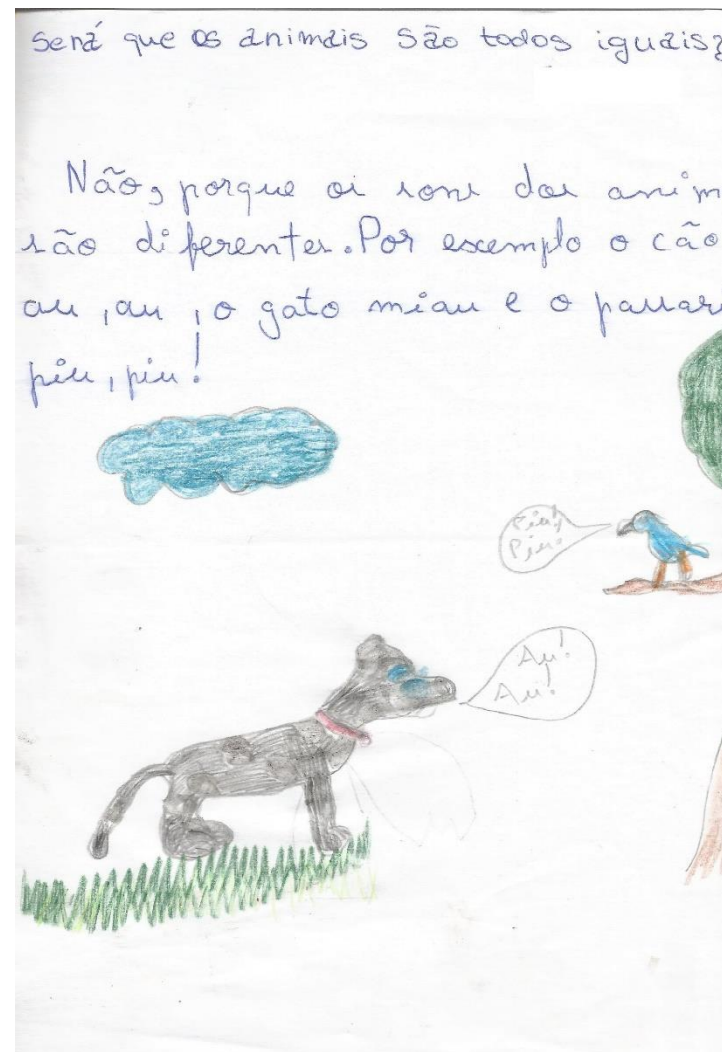 Será que os animais são todos iguais?
Não, porque os sons dos anim
são diferentes. Por escemplo o cão
au, au, o gato miau e o passar
piu, piu!
Piu!
Piu!
Au!
Au!